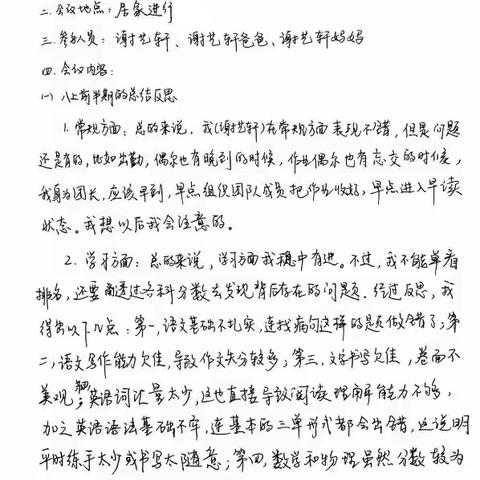 二. 会议地点：居家进行
三. 参会人员：谢艺轩、谢艺轩爸爸、谢艺轩妈妈
四. 会议内容：
㈠ 八上前半期的总结反思
1. 常规方面：总的来说，我(谢艺轩)在常规方面表现不错，但是问题
还是有的，比如出勤，偶尔也有晚到的时候，作业偶尔也有忘交的时候，
我身为团长，应该早到，早点组织团队成员把作业收好，早点进入早读
状态。我想以后我会注意的。
2. 学习方面：总的来说，学习方面我稳中有进。不过，我不能单看
排名，还要透过各科分数去发现背后存在的问题．经过反思，我
得出以下几点：第一，语文基础不扎实，连找病句这样的题做错了；第
二，语文写作能力欠佳，导致作文失分较多；第三，文字书写欠佳，卷面不
美观；英语词汇量太少，这也直接导致阅读理解能力不够，
加之英语语法基础不牢，连基本的三单形式都会出错，这说明
平时练于太少或书写太随意；第四，数学和物理虽然分数较为